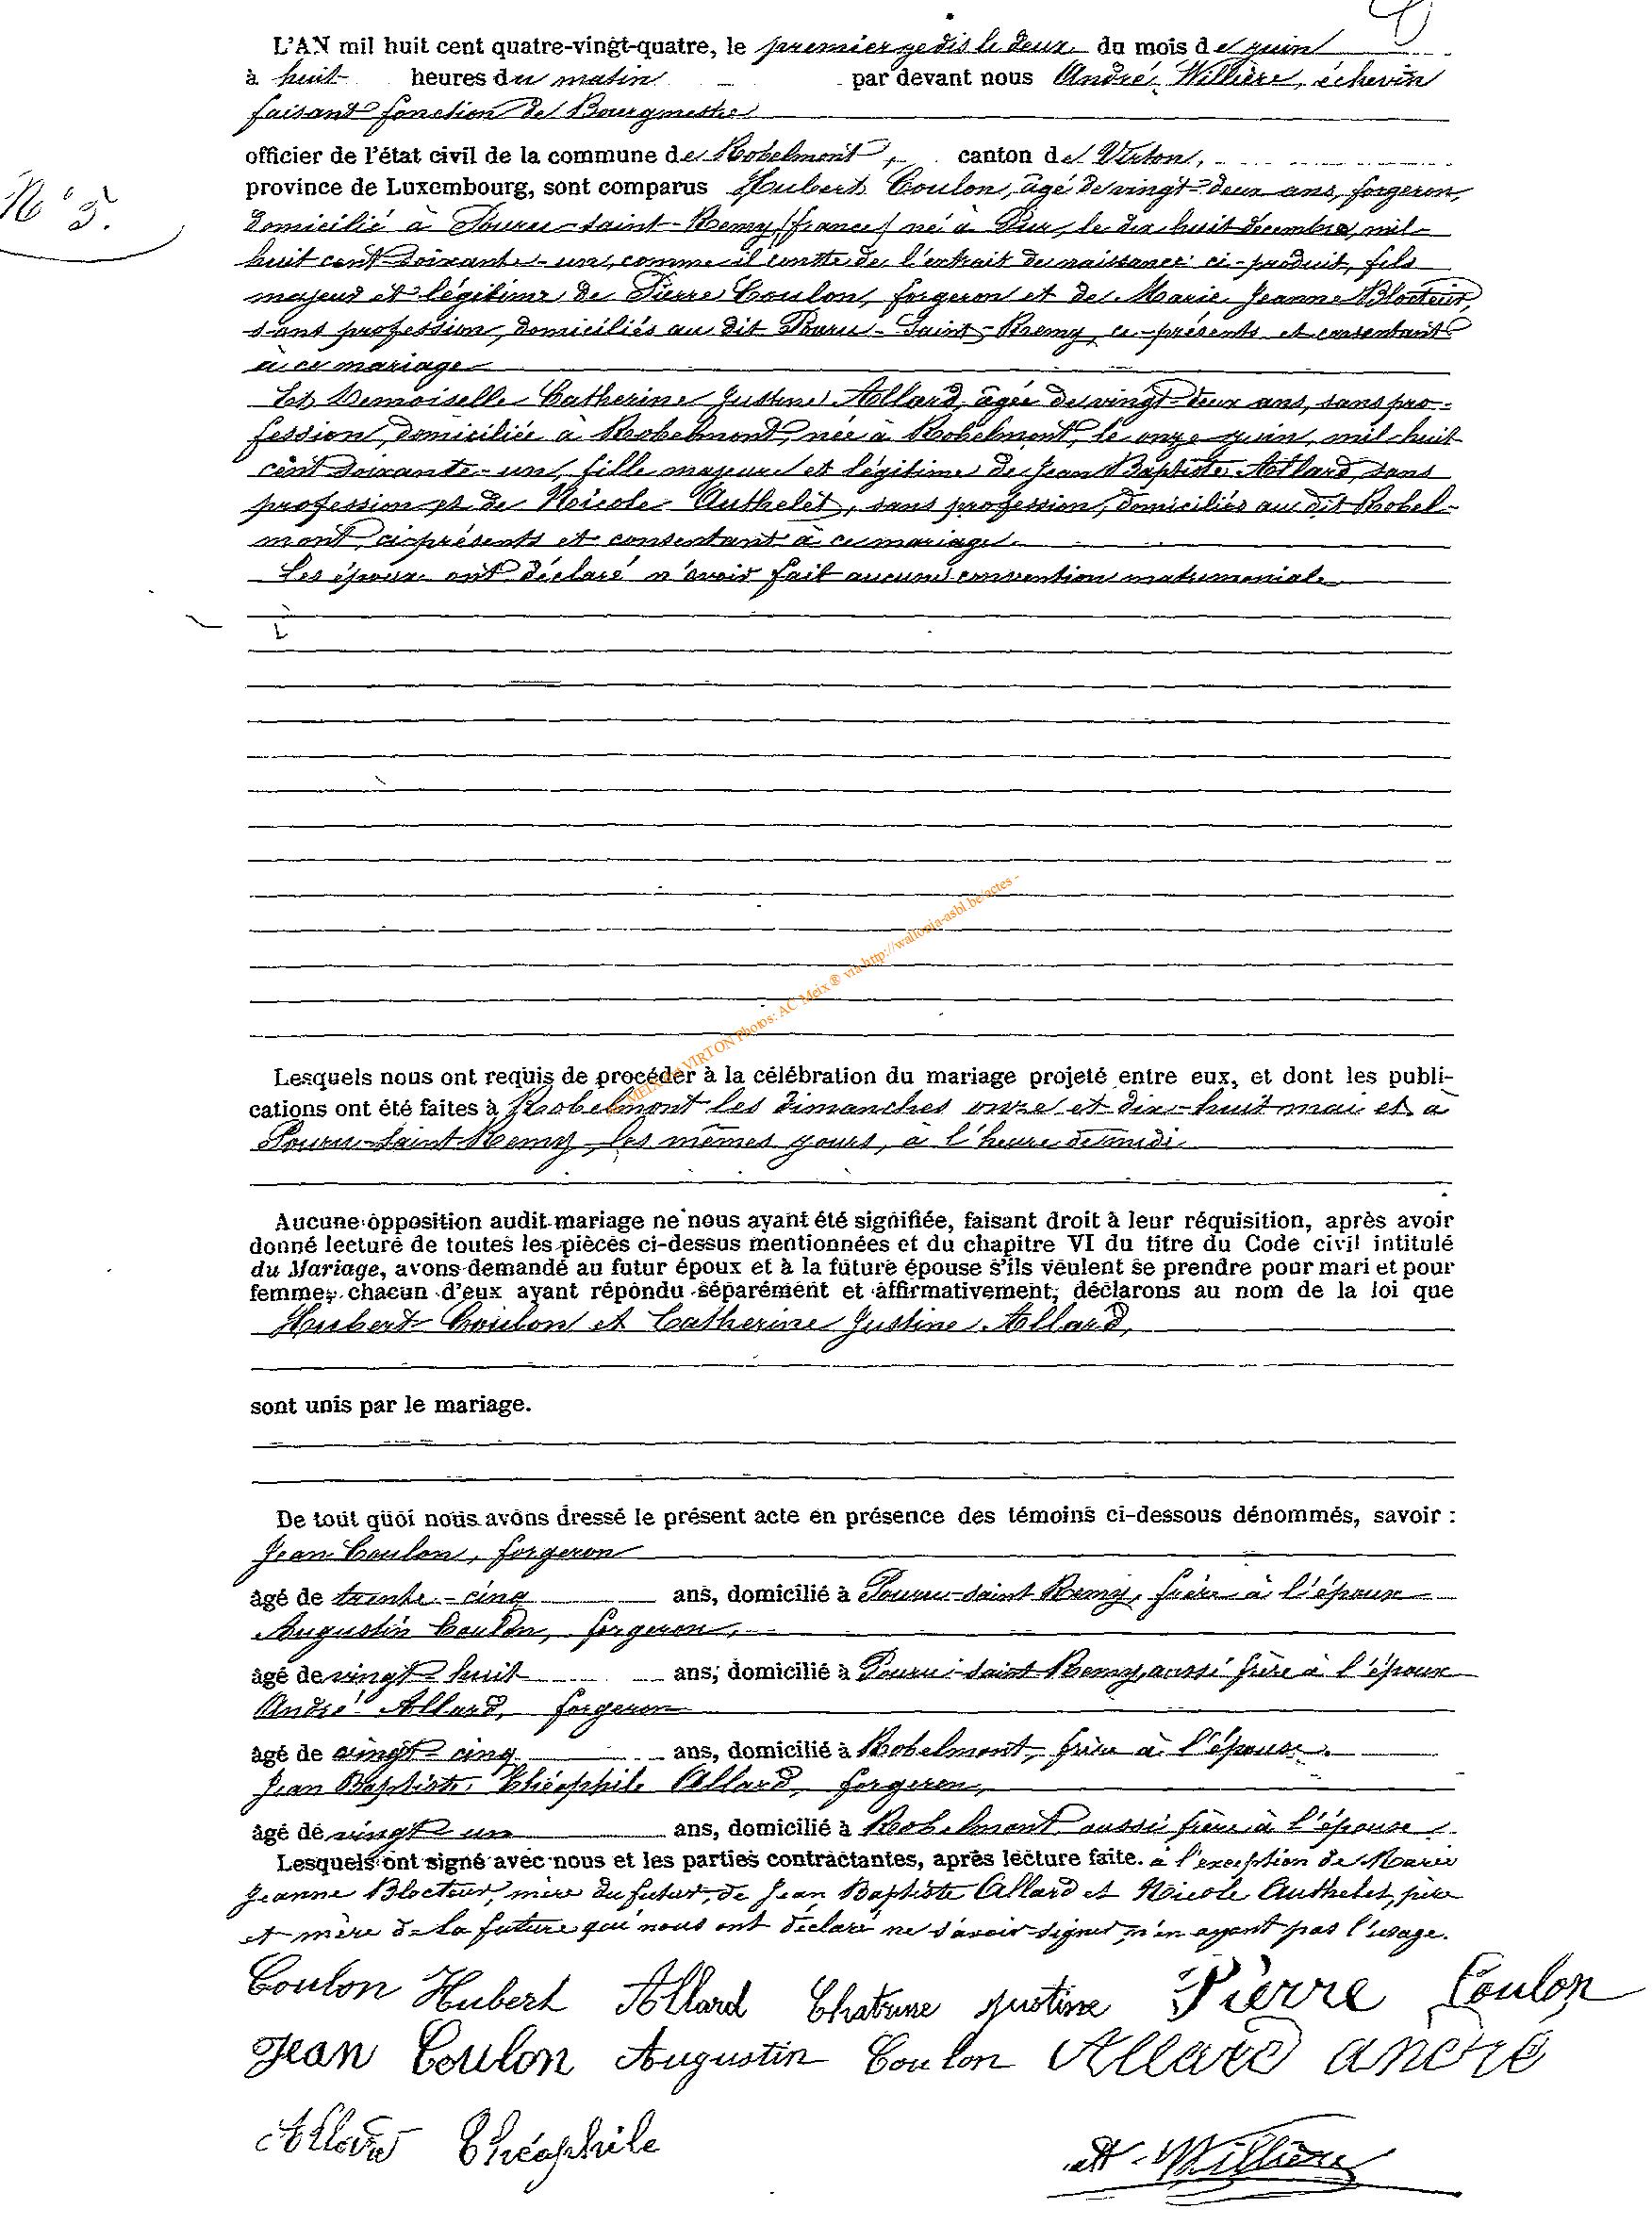 L'AN mil huit cent quatre-vingt-quatre, le premier je dis le deux du mois de juin
à huit heures du matin par devant nous André Willière, échevin
faisant fonction de Bourgmestre
officier de l'état civil de la commune de Robelmont, canton de Virton,
N° 5.
province de Luxembourg, sont comparus Hubert Coulon, âgé de vingt-deux ans, forgeron,
domicilié à Pouru-saint-Remy (france) né à Pur, le dix huit décembre, mil-
huit cent soixante-un, comme il conste de l'extrait de naissance ci-produit, fils
majeur et légitime de Pierre Coulon, forgeron et de Marie Jeanne Blocteur,
sans profession, domiciliés au dit Pouru-Saint-Remy, ci-présents et consentant
à ce mariage
Et Demoiselle Catherine Justine Allard, âgée de vingt-deux ans, sans pro-
fession, domiciliée à Robelmont, née à Robelmont, le onze juin, mil-huit
cent soixante-un, fille majeure et légitime de Jean Baptiste Allard, sans
profession et de Nicole Authelet, sans profession, domiciliés au dit Robel-
mont, ci-présents et consentant à ce mariage.
Les époux ont déclaré n'avoir fait aucune convention matrimoniale
MEIX DT VIRTON Photos: AC Meix ® via http://wallonia-asbl.be/actes -
Lesquels nous ont requis de procéder à la célébration du mariage projeté entre eux, et dont les publi-
cations ont été faites à Robelmont les dimanches onze et dix-huit mai et à
Pouru-Saint Remy, les mêmes jours, à l'heure de midi
Aucune opposition audit mariage ne nous ayant été signifiée, faisant droit à leur réquisition, après avoir
donné lecture de toutes les pièces ci-dessus mentionnées et du chapitre VI du titre du Code civil intitulé
du Mariage, avons demandé au futur époux et à la future épouse s'ils veulent se prendre pour mari et pour
femme; chacun d'eux ayant répondu séparément et affirmativement, déclarons au nom de la loi que
Hubert Coulon et Catherine Justine Allard,
sont unis par le mariage.
De tout quoi nous avons dressé le présent acte en présence des témoins ci-dessous dénommés, savoir :
Jean Coulon, forgeron
âgé de trente-cinq ans, domicilié à Pouru-saint Remy, frère à l'époux
Augustin Coulon, forgeron,
âgé de vingt-huit ans, domicilié à Pouru-saint Remy, aussi frère à l'époux
André Allard, forgeron
âgé de vingt-cinq ans, domicilié à Robelmont, frère à l'épouse.
Jean Baptiste Théophile Allard, forgeron,
âgé de vingt un ans, domicilié à Robelmont aussi frère à l'épouse.
Lesquels ont signé avec nous et les parties contractantes, après lecture faite. à l'exception de Marie
Jeanne Blocteur, mère du futur, de Jean Baptiste Allard et Nicole Authelet, père
et mère de la future qui nous ont déclaré ne savoir signer n'en ayant pas l'usage.
Coulon Hubert Allard Chatrine justine Pierre Coulon
Jean Coulon Augustin Coulon Allard andré
Allard Théophile A. Willière